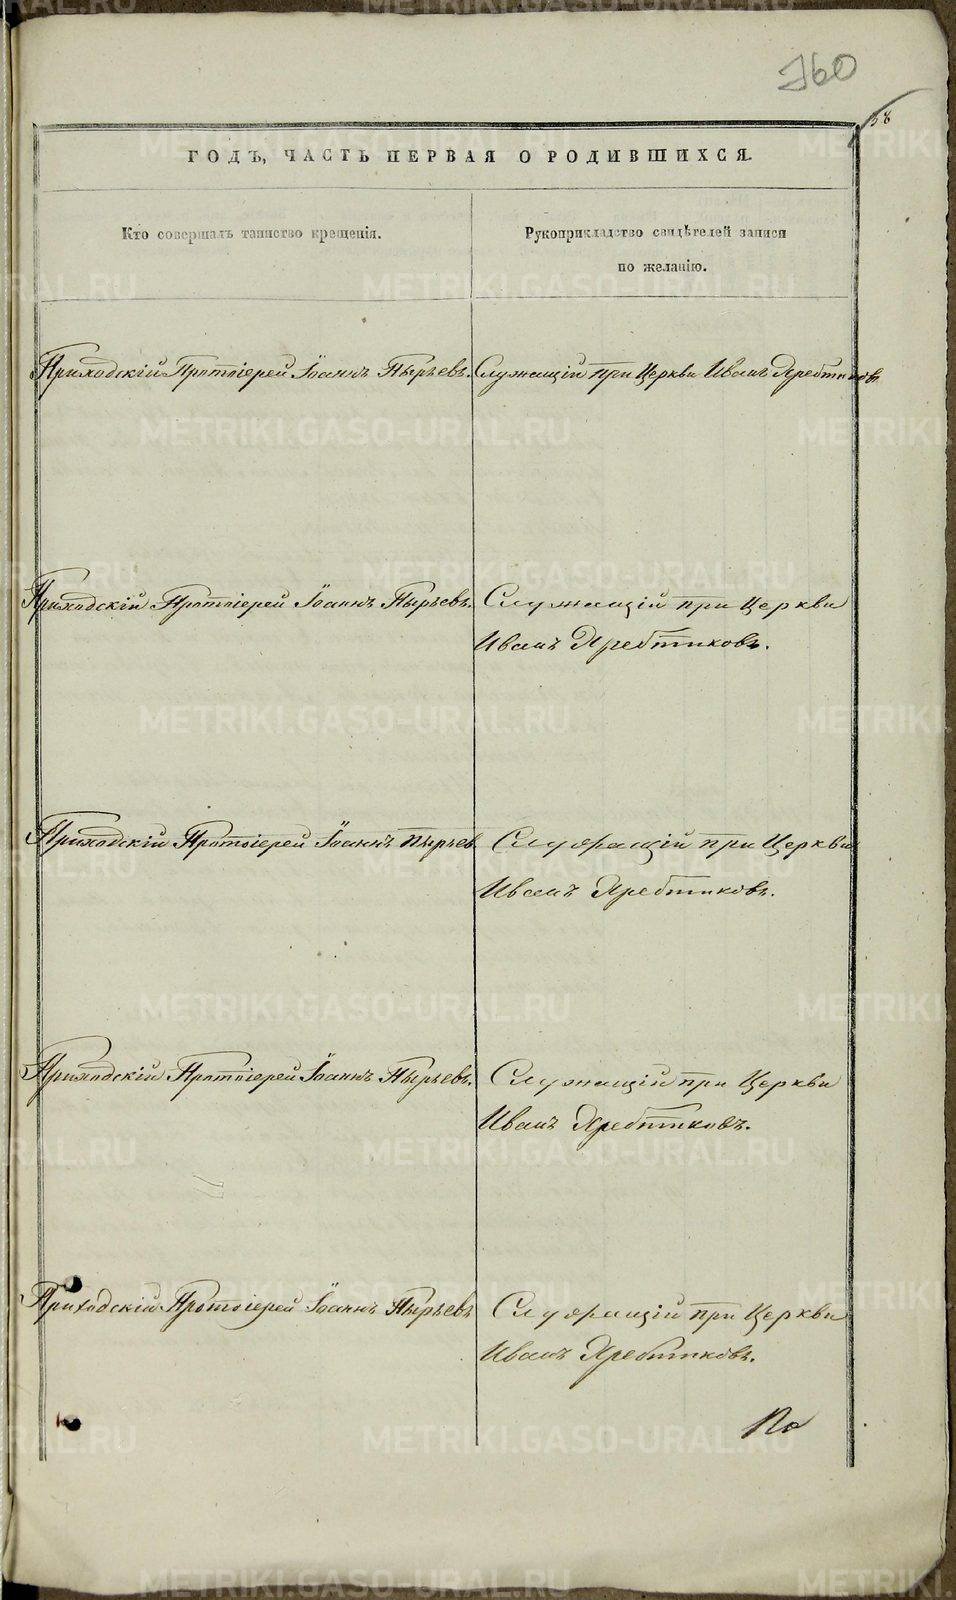 360
58
ГОДЪ, ЧАСТЬ ПЕРВАЯ О РОДИВШИХСЯ.
Кто совершалъ таинство крещенія.
Рукоприкладство свидѣтелей записи
по желанію.
Приходскій Протоіерей Іоаннъ Пырьевъ.
Служащій при Церкви Иванъ Хребтиковъ
Приходскій Протоіерей Іоаннъ Пырьевъ.
Служащій при Церкви
Иванъ Хребтиковъ.
Приходскій Протоіерей Іоаннъ Пырьев
Служащій при Церкви
Иванъ Хребтиковъ.
Приходскій Протоіерей Іоаннъ Пырьевъ.
Служащій при Церкви
Иванъ Хребтиковъ.
Приходскій Протоіерей Іоаннъ Пырьевъ
Служащій при Церкви
Иванъ Хребтиковъ.
По
METRIKI.GASO-URAL.RU